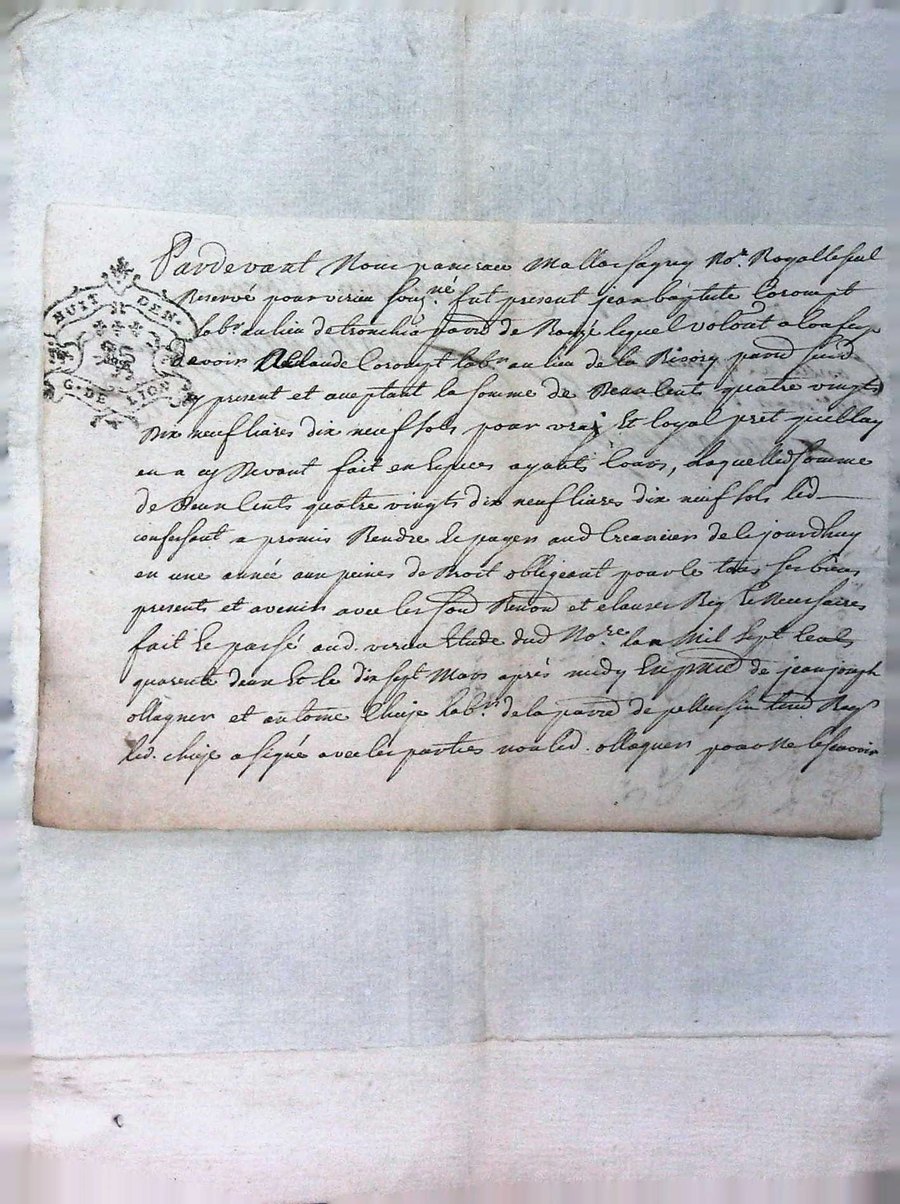 HUIT DEN.
G. DE LION
Pardevant Nous pancrace Mallassagny No.re Royal
Reservé pour virieu souz.né fut present jean baptiste Corompt
lab.r au lieu de paroe de lequel volont
devoir a Claude Corompt lab.r au lieu de la parod
y present et aceptant la somme de Deux Cents quatre vingts
Dix neuf livres dix neuf sols pour vray Et loyal pret quil luy
en a cy Devant fait en Espices ayants Cours, laquelle d somme
de Deux Cents quatre vingts dix neuf livres dix neuf sols led
confessant a promis Rendre Et payer aud Creancier de ce jourdhuy
en une année aux peines de Droit obligeant pour ce tous ses biens
presents et avenir avec les Renon et clauses Req Et Necessaires
fait Et passé aud. virieu Etude dud No.re lan Mil Sept Cents
quarente deux Et le dix sept Mars aprés midy En de jean joseph
ollagner et antoine Chieze lab.rs de la parroe de pellussin
led. chieze a signé avec les parties non led. ollagner pour ne le scavoir